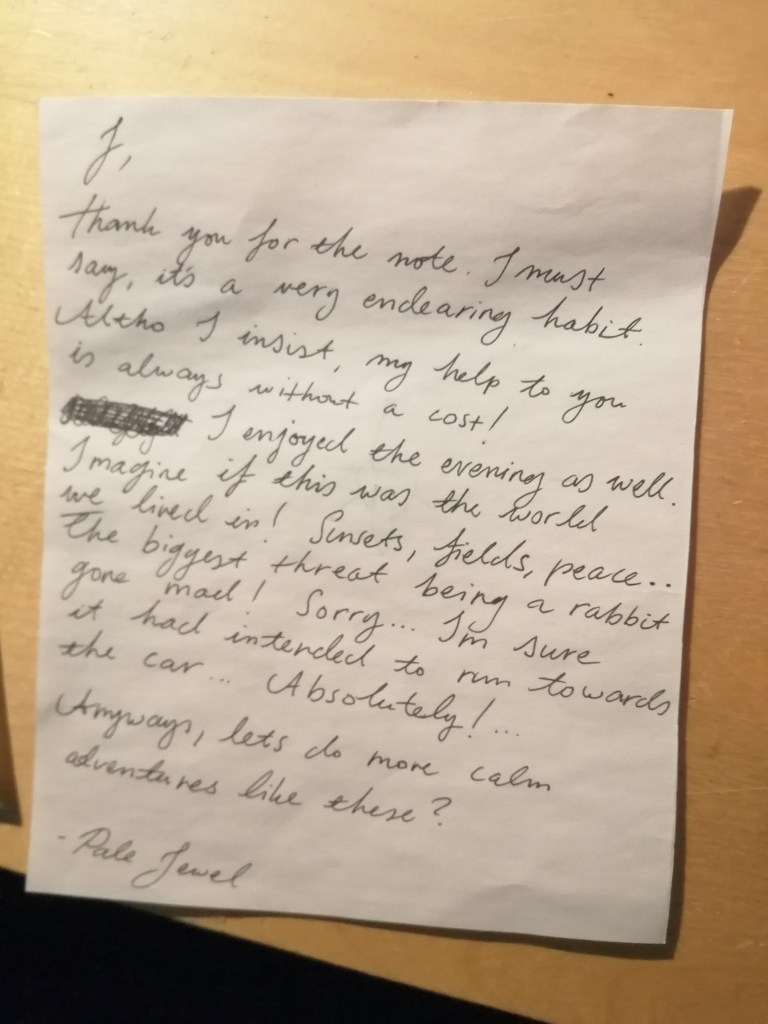 J,
thank you for the note. I must
say, it's a very endearing habit.
Altho I insist, my help to you
is always without a cost!
I enjoyed the evening as well.
Imagine if this was the world
we lived in! Sunsets, fields, peace..
the biggest threat being a rabbit
gone mad! Sorry... I'm sure
it had intended to run towards
the car... Absolutely!...
Anyways, lets do more calm
adventures like these?
- Pale Jewel